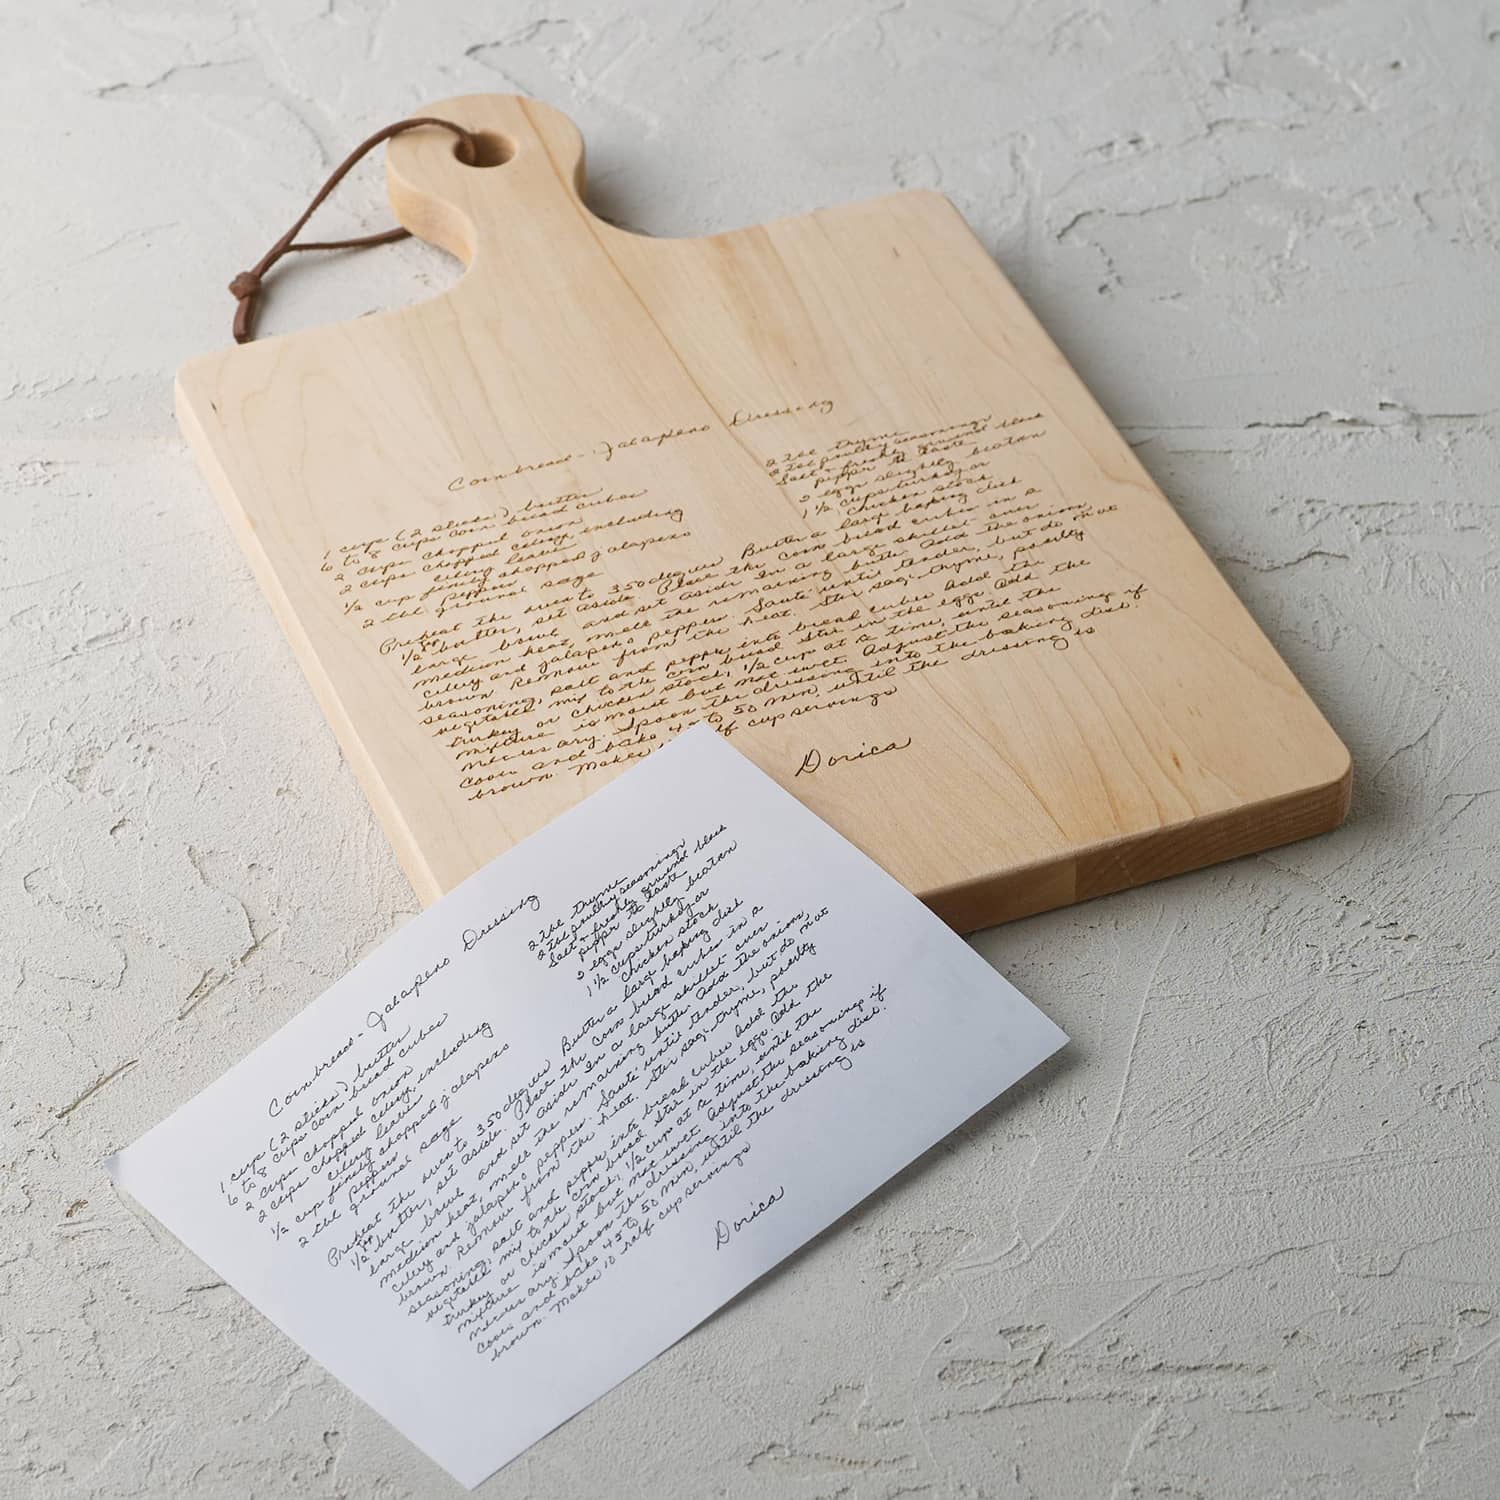 Cornbread - Jalapeno Dressing
1 cup (2 sticks) butter
6 to 8 cups corn bread cubes
2 cups chopped onion
2 cups chopped celery, including
celery leaves
1/2 cup finely chopped jalapeno
peppers
2 tbl ground sage
2 tbl thyme
2 tbl poultry seasonings
Salt & freshly ground black
pepper to taste
2 eggs slightly beaten
1 1/2 cups turkey or
chicken stock
Preheat the oven to 350 degrees Butter a large baking dish
1/2 butter, set aside. Place the corn bread cubes in a
large bowl and set aside In a large skillet over
medium heat, melt the remaining butter Add the onions,
celery and jalapeno peppers. Sauté until tender, but do not
brown Remove from the heat. Stir sage, thyme, poultry
seasoning, salt and pepper into bread cubes Add the
vegetable mix to the corn bread Stir in the eggs Add the
turkey or chicken stock, 1/2 cup at a time, until the
mixture is moist but not wet Adjust the seasonings if
necessary. Spoon the dressing into the baking dish.
Cover and bake 45 to 50 min, until the dressing is
brown. Makes half cup servings
Dorica
Cornbread - Jalapeno Dressing
1 cup (2 sticks) butter
6 to 8 cups corn bread cubes
2 cups chopped onion
2 cups chopped celery, including
celery leaves
1/2 cup finely chopped jalapeno
peppers
2 tbl ground sage
2 tbl thyme
2 tbl poultry seasonings
Salt & freshly ground black
pepper to taste
2 eggs slightly beaten
1 1/2 cups turkey or
chicken stock
Preheat the oven to 350 degrees Butter a large baking dish
1/2 butter, set aside. Place the corn bread cubes in a
large bowl and set aside In a large skillet over
medium heat, melt the remaining butter Add the onions,
celery and jalapeno peppers. Sauté until tender, but do not
brown. Remove from the heat. Stir sage, thyme, poultry
seasoning, salt and pepper into bread cubes Add the
vegetable mix to the corn bread Stir in the eggs Add the
turkey or chicken stock, 1/2 cup at a time, until the
mixture is moist but not wet Adjust the seasonings if
necessary. Spoon the dressing into the baking dish.
Cover and bake 45 to 50 min, until the dressing is
brown. Makes 10 half cup servings
Dorica